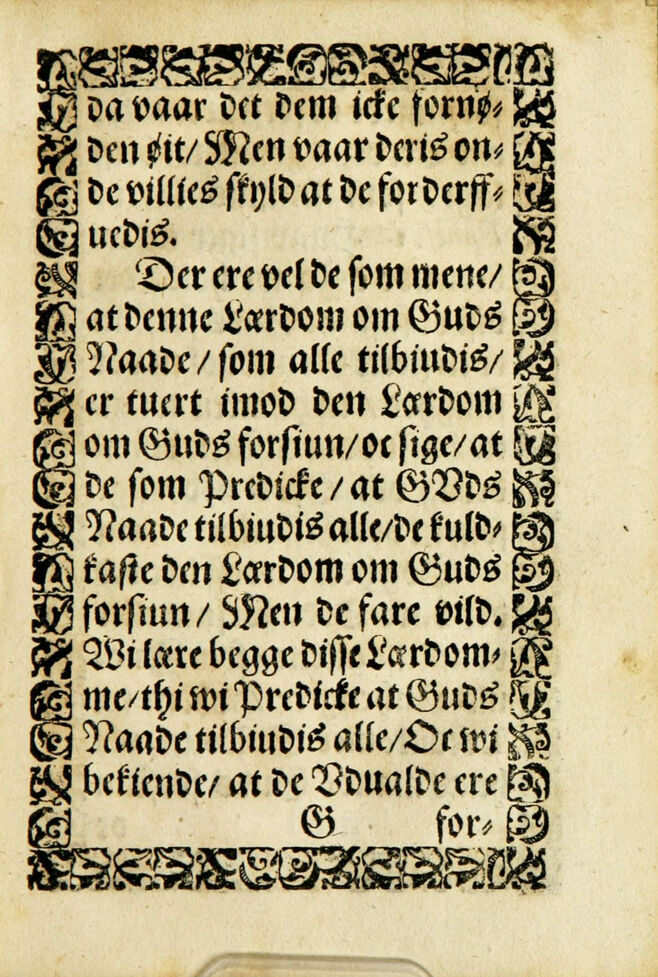 da vaar det dem icke fornø⸗
den øit/ Men vaar deris on⸗
de villies skyld at de forderff⸗
uedis.
Der ere vel de som mene/
at denne Lærdom om Guds
Naade/ som alle tilbiudis/
er tuert imod den Lærdom
om Guds forsiun/ oc sige/ at
de som Predicke/ at GVds
Naade tilbiudis alle/ de kuld⸗
kaste den Lærdom om Guds
forsiun/ Men de fare vild.
Wi lære begge disse Lærdom⸗
me/ thi wi Predicke at Guds
Naade tilbiudis alle/ Oc wi
bekiende/ at de Vdualde ere
G for⸗